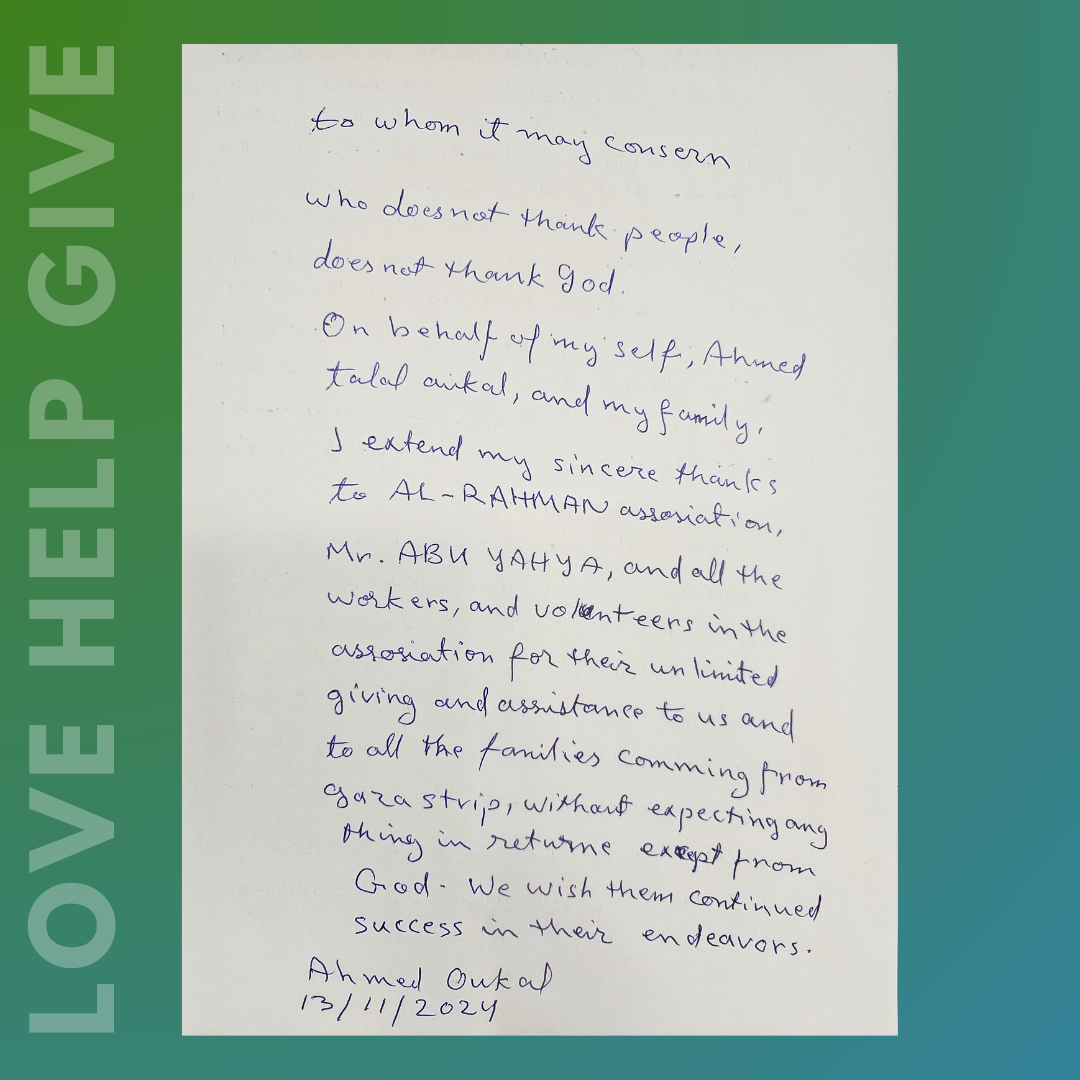 LOVE HELP GIVE
to whom it may consern
who does not thank people,
does not thank God.
On behalf of my self, Ahmed
talal aukal, and my family,
I extend my sincere thanks
to AL-RAHMAN assosiation,
Mr. ABU YAHYA, and all the
workers, and volunteers in the
assosiation for their unlimited
giving and assistance to us and
to all the families comming from
gaza strip, without expecting any
thing in returne except from
God. We wish them continued
success in their endeavors.
Ahmed Oukal
13/11/2024